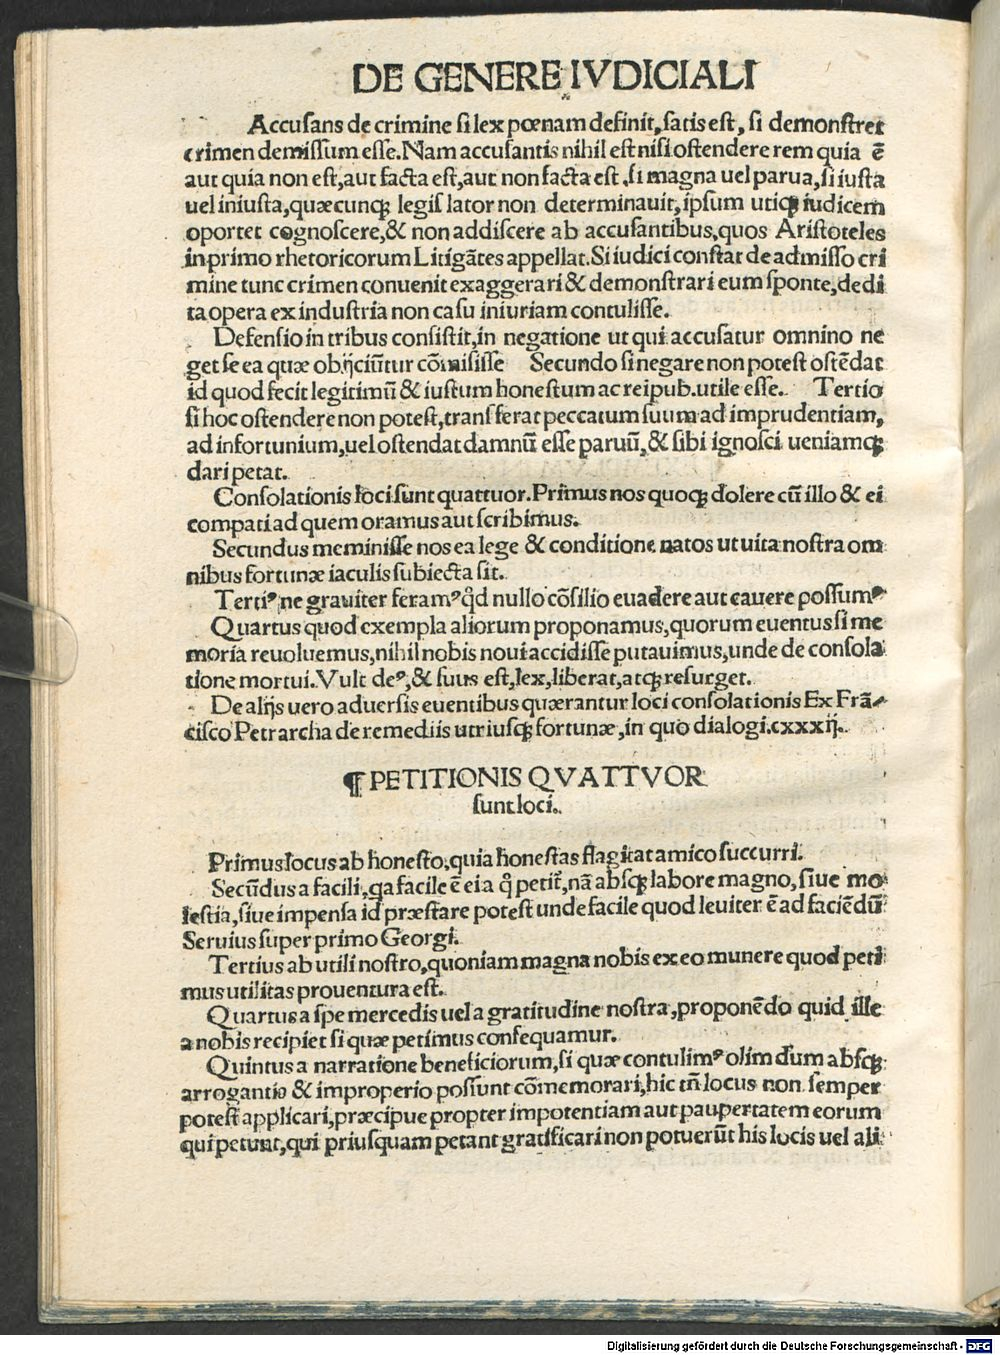 DE GENERE IVDICIALI
Accusans de crimine si lex pœnam definit, satis est, si demonstret
crimen demissum esse. Nam accusantis nihil est nisi ostendere rem quia ē
aut quia non est, aut facta est, aut non facta est, si magna uel parua, si iusta
uel iniusta, quæcunqꝫ legis lator non determinauit, ipsum utiqꝫ iudicem
oportet cognoscere, & non addiscere ab accusantibus, quos Aristoteles
in primo rhetoricorum Litigātes appellat. Si iudici constat de admisso cri
mine tunc crimen conuenit exaggerari & demonstrari eum sponte, dedi
ta opera ex industria non casu iniuriam contulisse.
Defensio in tribus consistit, in negatione ut qui accusatur omnino ne
get se ea quæ obijciūtur cōmisisse Secundo si negare non potest ostēdat
id quod fecit legitimū & iustum honestum ac reipub. utile esse. Tertio
si hoc ostendere non potest, transferat peccatum suum ad imprudentiam,
ad infortunium, uel ostendat damnū esse paruū, & sibi ignosci ueniamqꝫ
dari petat.
Consolationis loci sunt quattuor. Primus nos quoqꝫ dolere cū illo & ei
compati ad quem oramus aut scribimus.
Secundus meminisse nos ea lege & conditione natos ut uita nostra om
nibus fortunæ iaculis subiecta sit.
Tertiꝰ ne grauiter feramꝰ qd̄ nullo cōsilio euadere aut cauere possumꝰ
Quartus quod exempla aliorum proponamus, quorum euentus si me
moria reuoluemus, nihil nobis noui accidisse putauimus, unde de consola
tione mortui. Vult deꝰ, & suus est, lex, liberat, atqꝫ resurget.
De alijs uero aduersis euentibus quærantur loci consolationis Ex Frā-
cisco Petrarcha de remediis utriusqꝫ fortunæ, in quo dialogi. cxxxij.
¶ PETITIONIS QVATTVOR
sunt loci.
Primus locus ab honesto, quia honestas flagitat amico succurri.
Secūdus a facili, qa facile ē ei a q̊ petit̄, nā absqꝫ labore magno, siue mo
lestia, siue impensa id præstare potest unde facile quod leuiter ē ad faciēdū
Seruius super primo Georgi.
Tertius ab utili nostro, quoniam magna nobis ex eo munere quod peti
mus utilitas prouentura est.
Quartus a spe mercedis uel a gratitudine nostra, proponēdo quid ille
a nobis recipiet si quæ petimus consequamur.
Quintus a narratione beneficiorum, si quæ contulimꝰ olim dum absqꝫ
arrogantio & improperio possunt cōmemorari, hic tn̄ locus non semper
potest applicari, præcipue propter impotentiam aut paupertatem eorum
qui petunt, qui priusquam petant gratificari non potuerūt his locis uel ali
Digitalisierung gefördert durch die Deutsche Forschungsgemeinschaft - DFG